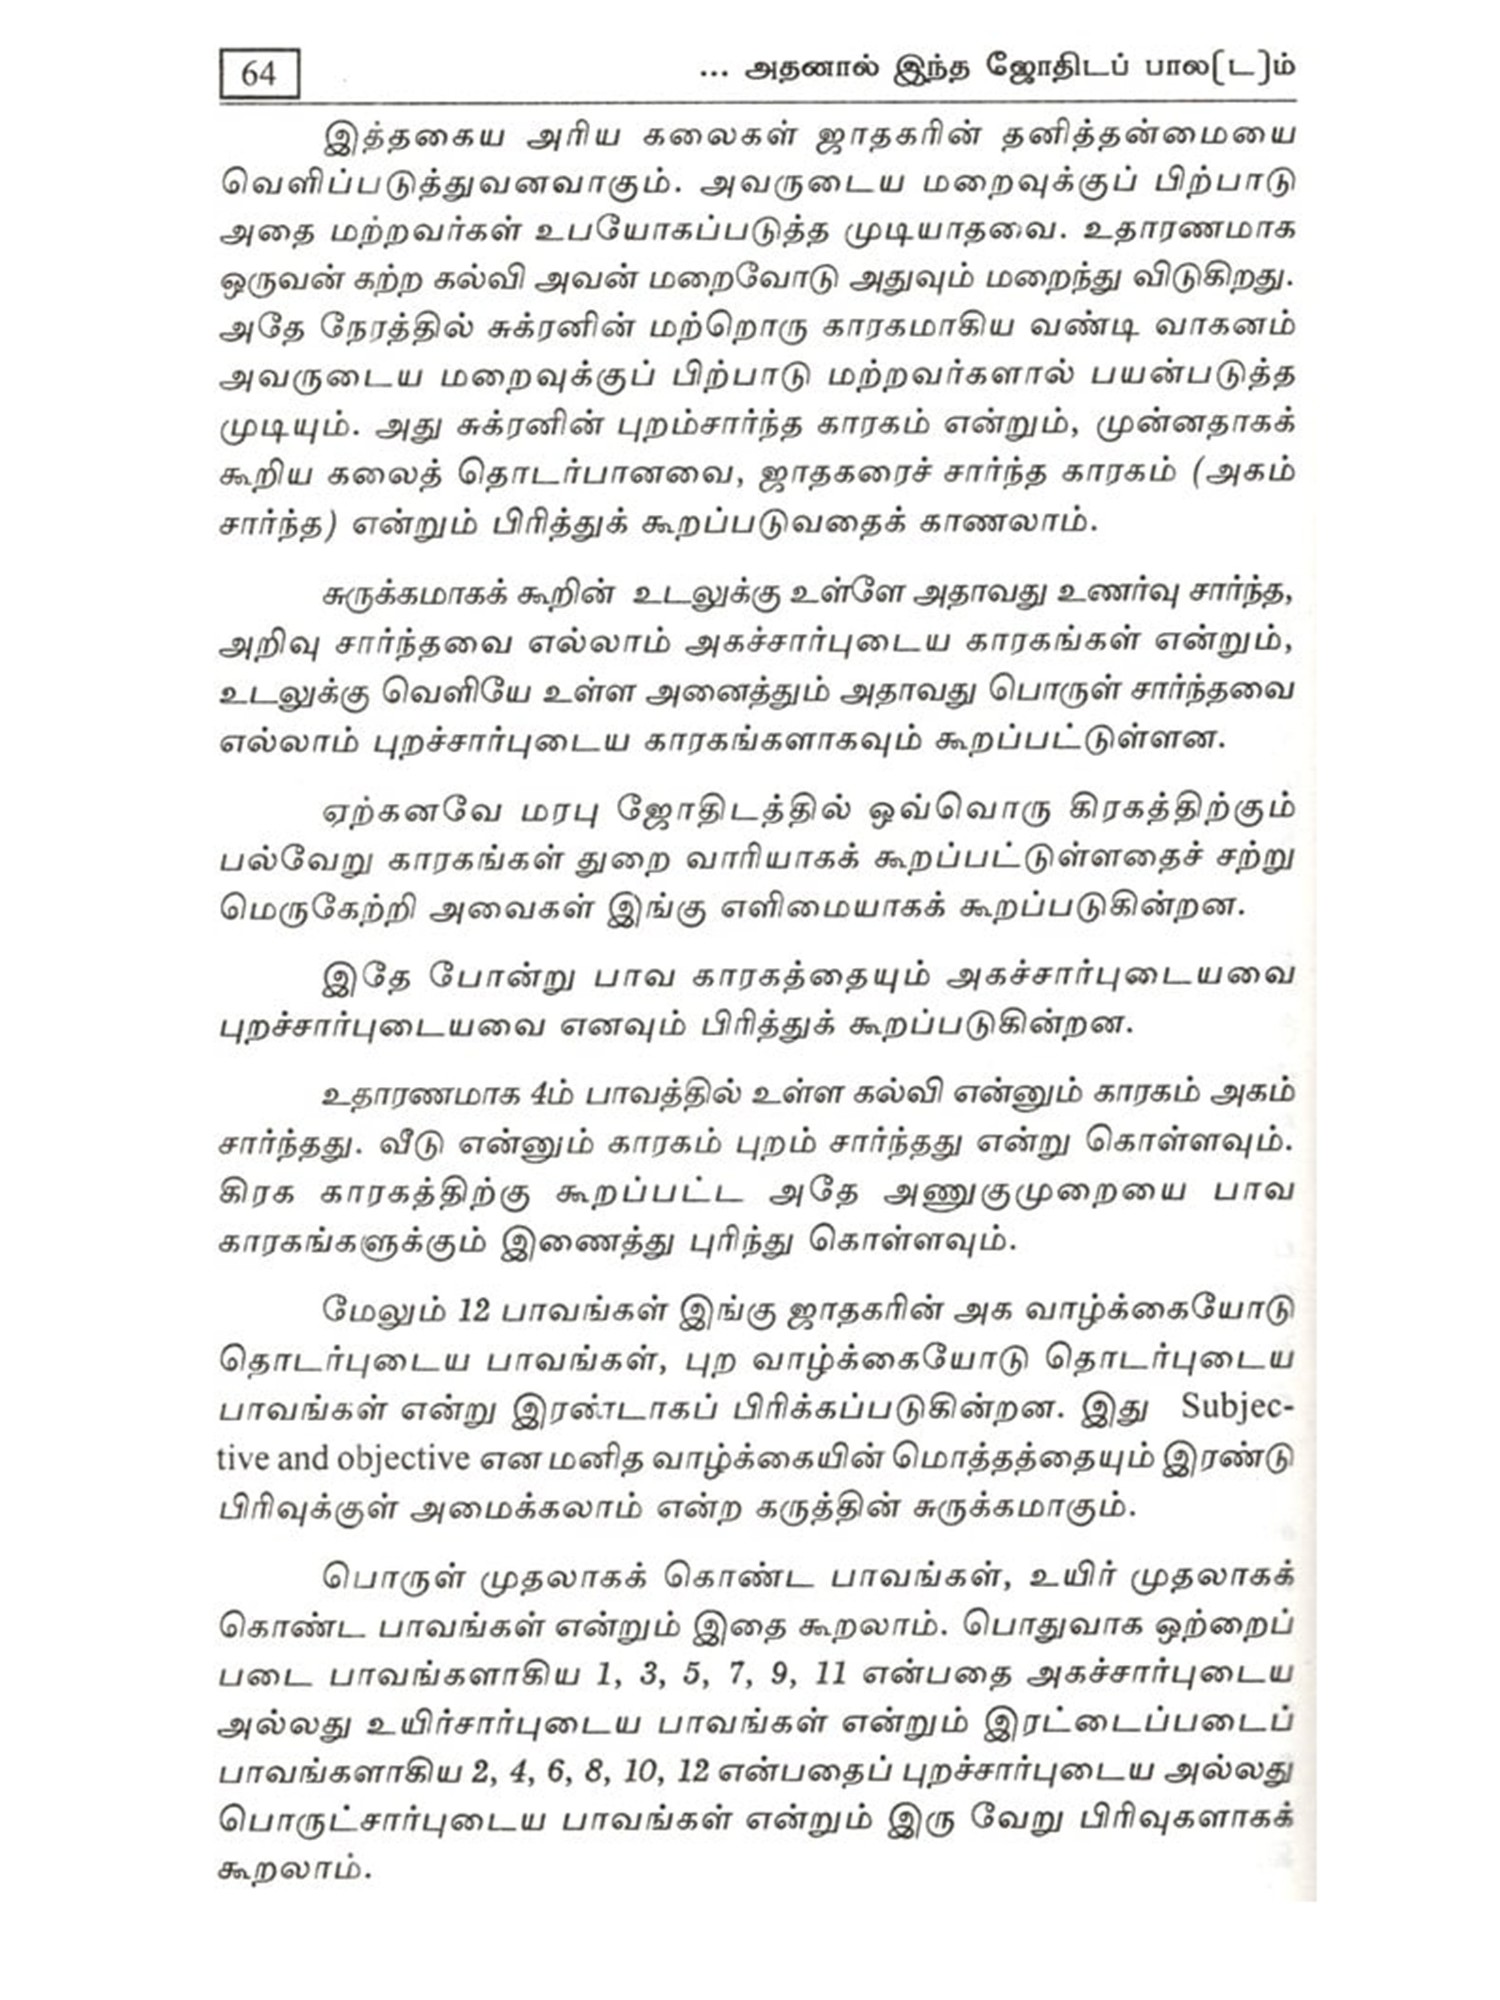 64
... அதனால் இந்த ஜோதிடப் பால(ட)ம்
இத்தகைய அரிய கலைகள் ஜாதகரின் தனித்தன்மையை
வெளிப்படுத்துவனவாகும். அவருடைய மறைவுக்குப் பிற்பாடு
அதை மற்றவர்கள் உபயோகப்படுத்த முடியாதவை. உதாரணமாக
ஒருவன் கற்ற கல்வி அவன் மறைவோடு அதுவும் மறைந்து விடுகிறது.
அதே நேரத்தில் சுக்ரனின் மற்றொரு காரகமாகிய வண்டி வாகனம்
அவருடைய மறைவுக்குப் பிற்பாடு மற்றவர்களால் பயன்படுத்த
முடியும். அது சுக்ரனின் புறம்சார்ந்த காரகம் என்றும், முன்னதாகக்
கூறிய கலைத் தொடர்பானவை, ஜாதகரைச் சார்ந்த காரகம் (அகம்
சார்ந்த) என்றும் பிரித்துக் கூறப்படுவதைக் காணலாம்.
சுருக்கமாகக் கூறின் உடலுக்கு உள்ளே அதாவது உணர்வு சார்ந்த,
அறிவு சார்ந்தவை எல்லாம் அகச்சார்புடைய காரகங்கள் என்றும்,
உடலுக்கு வெளியே உள்ள அனைத்தும் அதாவது பொருள் சார்ந்தவை
எல்லாம் புறச்சார்புடைய காரகங்களாகவும் கூறப்பட்டுள்ளன.
ஏற்கனவே மரபு ஜோதிடத்தில் ஒவ்வொரு கிரகத்திற்கும்
பல்வேறு காரகங்கள் துறை வாரியாகக் கூறப்பட்டுள்ளதைச் சற்று
மெருகேற்றி அவைகள் இங்கு எளிமையாகக் கூறப்படுகின்றன.
இதே போன்று பாவ காரகத்தையும் அகச்சார்புடையவை
புறச்சார்புடையவை எனவும் பிரித்துக் கூறப்படுகின்றன.
உதாரணமாக 4ம் பாவத்தில் உள்ள கல்வி என்னும் காரகம் அகம்
சார்ந்தது. வீடு என்னும் காரகம் புறம் சார்ந்தது என்று கொள்ளவும்.
கிரக காரகத்திற்கு கூறப்பட்ட அதே அணுகுமுறையை பாவ
காரகங்களுக்கும் இணைத்து புரிந்து கொள்ளவும்.
மேலும் 12 பாவங்கள் இங்கு ஜாதகரின் அக வாழ்க்கையோடு
தொடர்புடைய பாவங்கள், புற வாழ்க்கையோடு தொடர்புடைய
பாவங்கள் என்று இரண்டாகப் பிரிக்கப்படுகின்றன. இது Subjec-
tive and objective என மனித வாழ்க்கையின் மொத்தத்தையும் இரண்டு
பிரிவுக்குள் அமைக்கலாம் என்ற கருத்தின் சுருக்கமாகும்.
பொருள் முதலாகக் கொண்ட பாவங்கள், உயிர் முதலாகக்
கொண்ட பாவங்கள் என்றும் இதை கூறலாம். பொதுவாக ஒற்றைப்
படை பாவங்களாகிய 1, 3, 5, 7, 9, 11 என்பதை அகச்சார்புடைய
அல்லது உயிர்சார்புடைய பாவங்கள் என்றும் இரட்டைப்படைப்
பாவங்களாகிய 2, 4, 6, 8, 10, 12 என்பதைப் புறச்சார்புடைய அல்லது
பொருட்சார்புடைய பாவங்கள் என்றும் இரு வேறு பிரிவுகளாகக்
கூறலாம்.